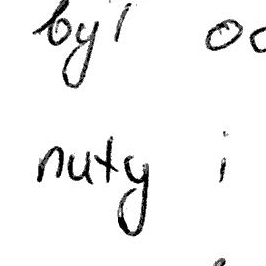 był
nuty i